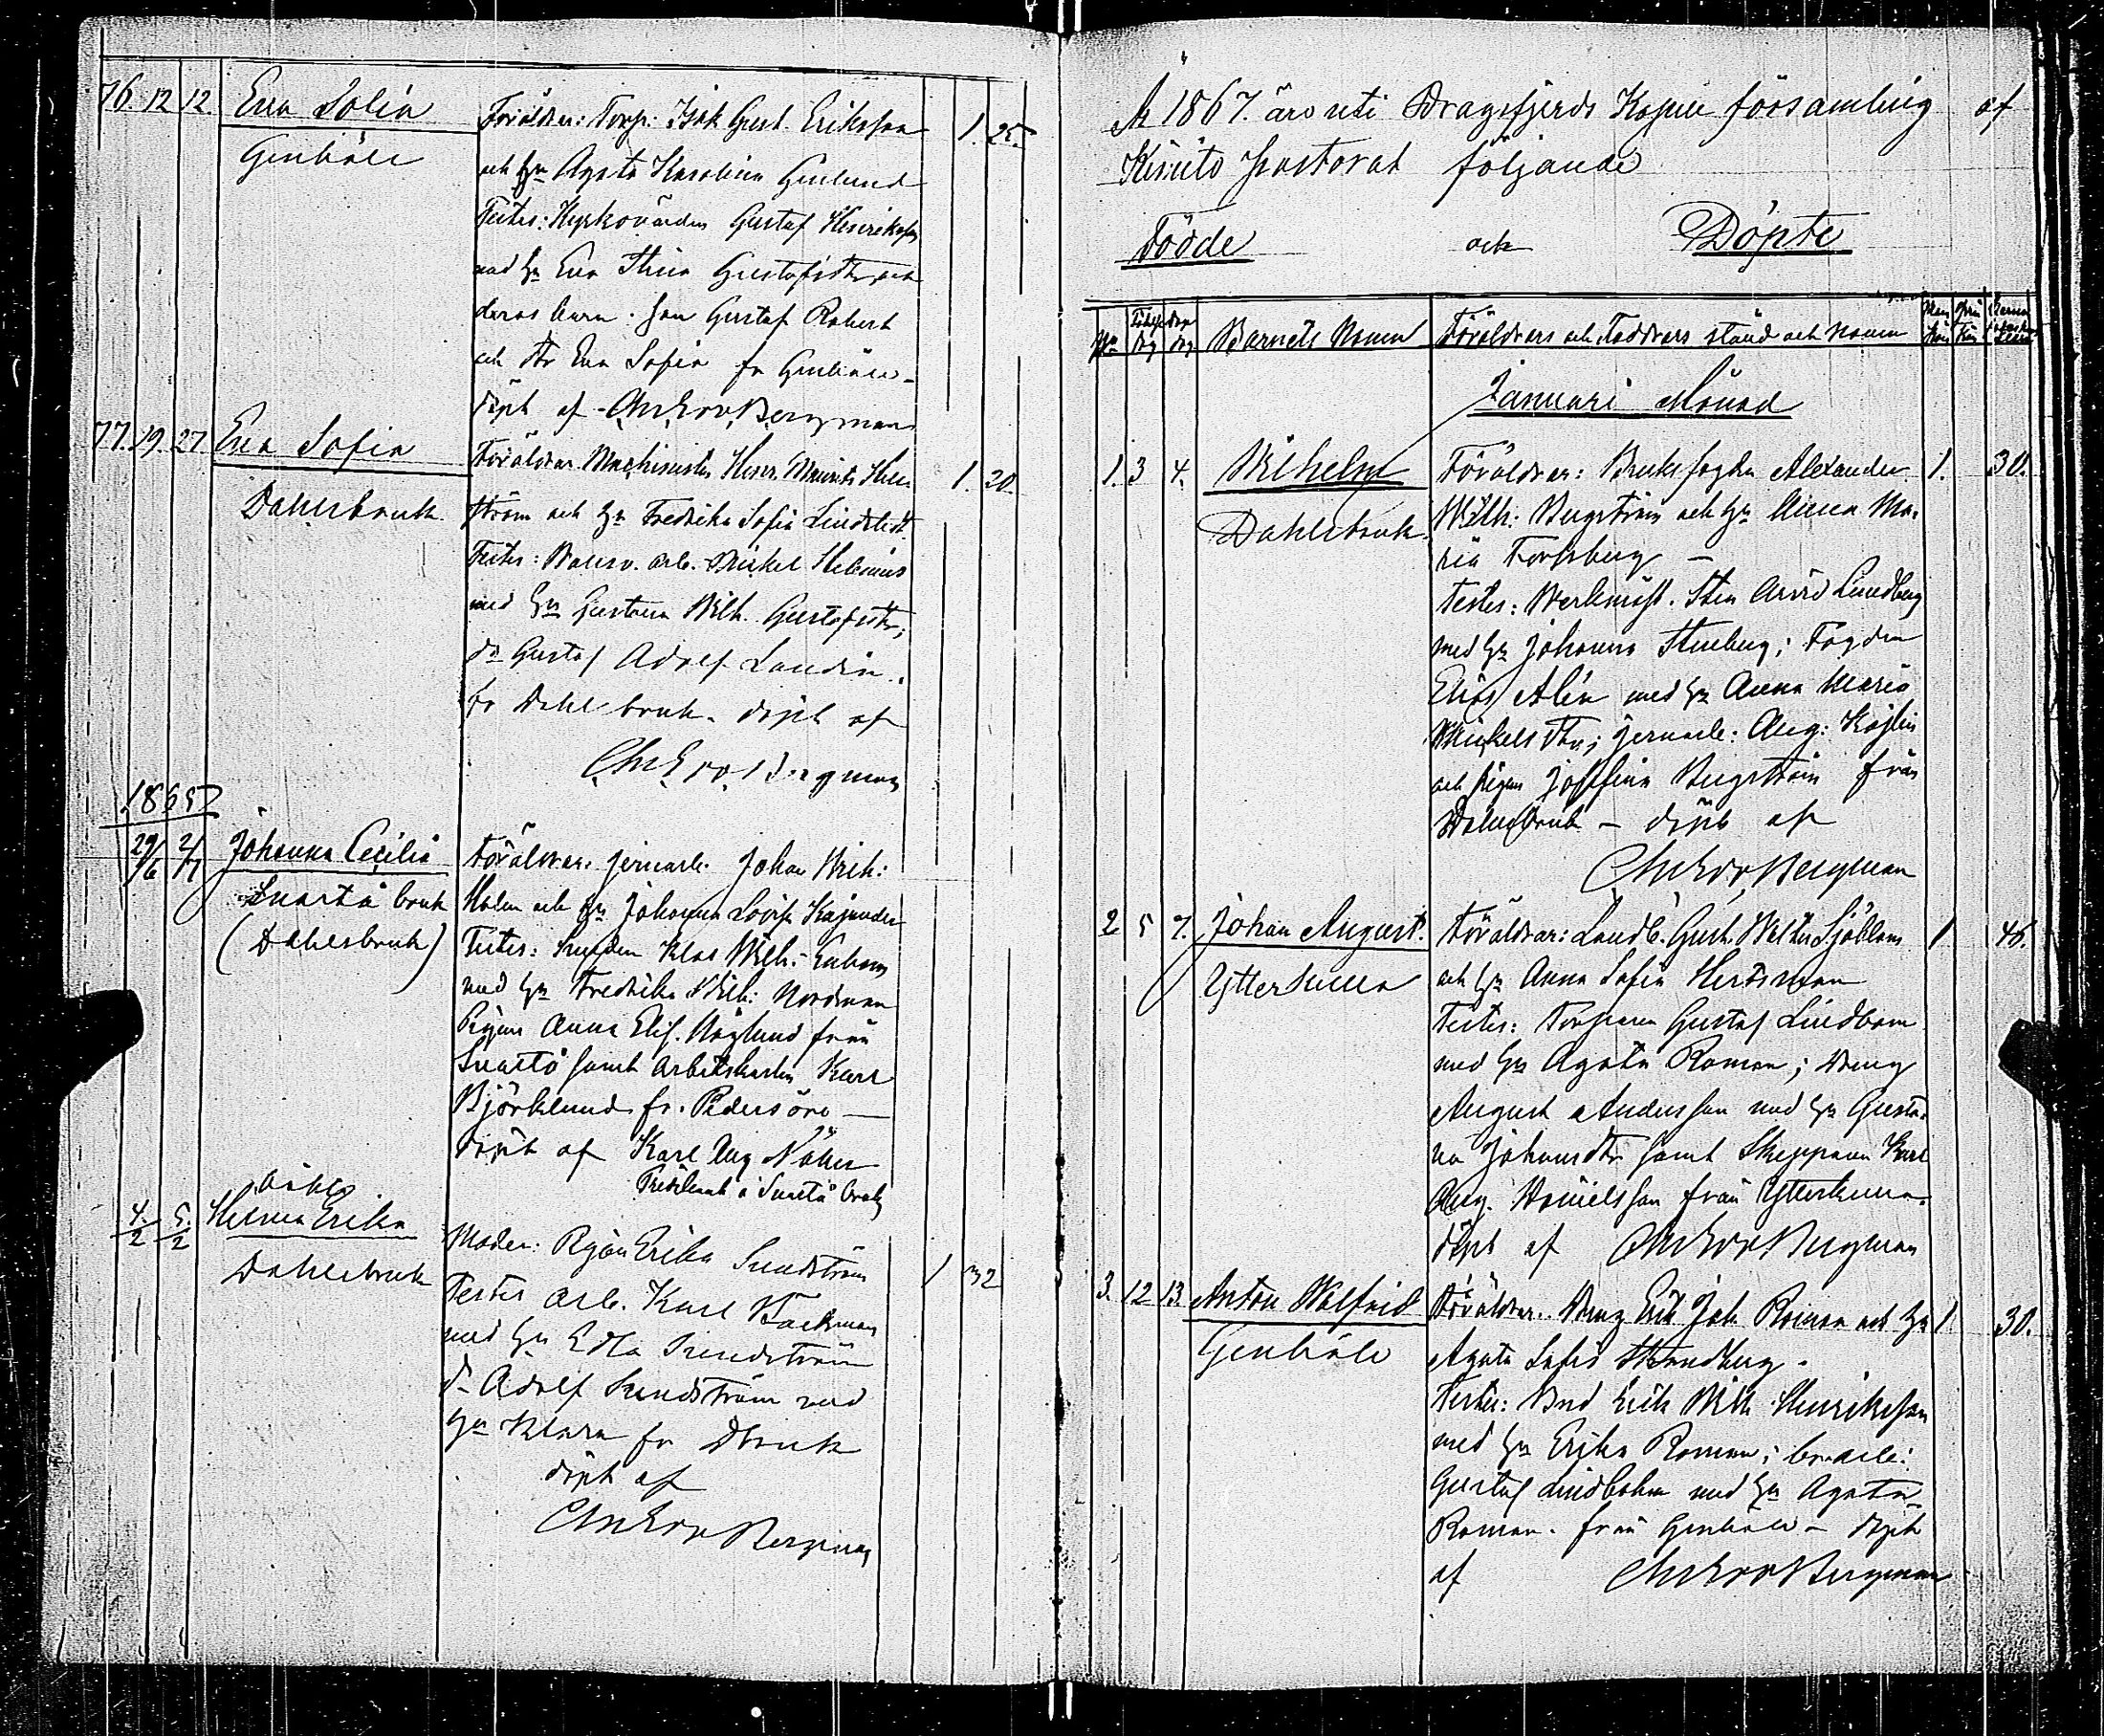 76. 12 12. Eva Sofia
Genböle
Föräldrar: Torp: Isak Gust. Eriksson 1. 25.
och h:u Agata Karolina Genlund
Testes: Kyrkovärden Gustaf Henriksson
med h:u Eva Stina Gustafsdtr och
deras barn: son Gustaf Robert
och dtr Eva Sofia fr Genböle
döpt af Chr Edv. Bergman
77. 19. 27 Eva Sofia
Dahlsbruk
Föräldrar Machinisten Henr. Maurits Hell- 1. 20.
ström och h:u Fredrika Sofia Lindstedt
Testes: arb. Mickel Helenius
med h:u Gustava Wilh. Gustafsdtr;
d:o Gustaf Adolf Lundin
fr Dahlsbruk. döpt af
Chr Edv. Bergman
1865
29/6 2/7 Johanna Cecilia
Svartå bruk
(Dahlsbruk)
Föräldrar: jernarb. Johan Wilh:
Holm och h:u Johanna Lovisa Kajander
Testes: Klas Wilh:
med h:u Fredrika Wilh: Nordman
Pigan Anna Elis. Höglund från
Svartå samt arbetskarlen Karl
Björklund fr. Pedersöre —
döpt af Karl Aug
Predikant i Svartå bruk
oäkta
4/2 5/2 Helena Erika
Dahlsbruk
Moder: Pigan Erika Sundström 1 32
Testes arb. Karl Backman
med h:u Edla Sundström
d:o Adolf Sundström med
h:u Klara fr Dbruk
döpt af
Chr Edv Bergman
År 1867. äro uti Dragsfjerds Kapell församling af
Kimito pastorat följande
Födde och Döpte
N:o Födelse dag Dop dag Barnets Namn Föräldrars och Faddrars stånd och namn Man kön Qvin kön
Januari Månad
1. 3 4. Wilhelm
Dahlsbruk
Föräldrar: Bruksfogden Alexander 1. 30.
Wilh: Bergström och h:u Minna Ma-
ria Forsberg —
Testes: Werkmäst. Sten Arvid Lundberg
med h:u Johanna Stenberg; Fogden
Elias Alén med h:u Anna Maria
Mickelsdtr; jernarb: Aug:
och pigan Josefina Bergström från
Dahlsbruk — döpt af
Chr Edv Bergman
2 5 7. Johan August.
Ytterkulla
Föräldrar: Landb. Gust. Walter Sjöblom 1 45.
och h:u Anna Sofia Herdsman
Testes: Torparen Gustaf Lindbom
med h:u Agata Roman; dreng
August Andersson med h:u Gusta-
va Johansdtr samt Skepparen Karl
Aug. Danielsson från Ytterkulla
döpt af Chr Edv Bergman
3. 12 13 Anton Walfrid
Genböle
Föräldrar: dreng Erik Joh. Roman och h:u 1 30.
Agata Sofia Strandberg.
Testes: Bnd Erik Wilh. Henriksson
med h:u Erika Roman; br.arb:
Gustaf Lindbohm med h:u Agata
Roman. från Genböle — döpt
af Chr Edv Bergman